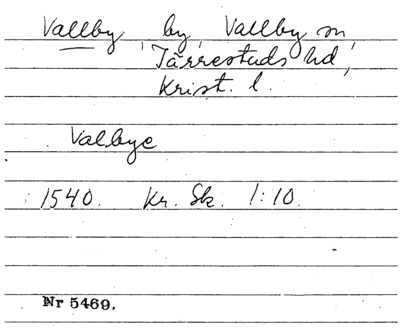 Vallby, by, Vallby sn,
Järrestads hd,
Krist. l.
Valbye
1540. Kr. Sk. 1:10.
Nr 5469.